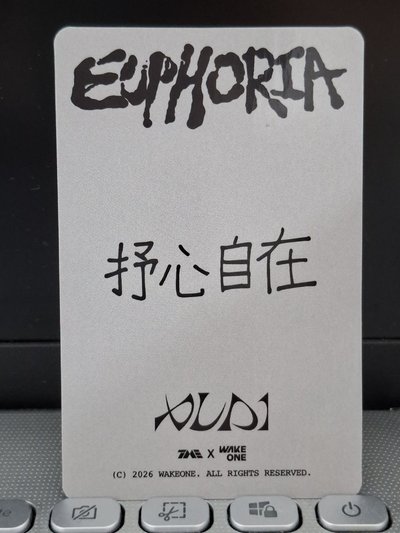 EUPHORIA
抒心自在
TME X WAKE ONE
(C) 2026 WAKEONE. ALL RIGHTS RESERVED.